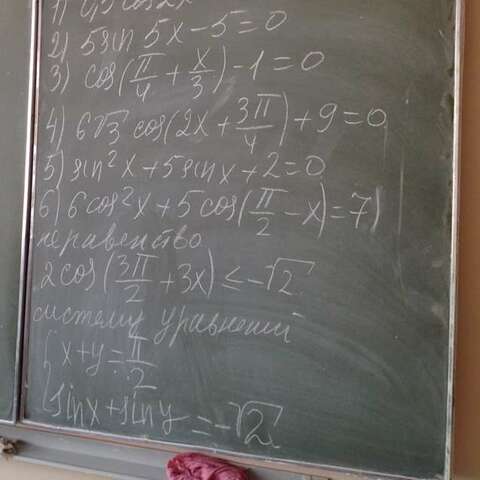 1) cos 2x
2) 5sin 5x - 5 = 0
3) cos(π/4 + x/3) - 1 = 0
4) 6√3 cos(2x + 3π/4) + 9 = 0
5) sin²x + 5sinx + 2 = 0
6) 6cos²x + 5cos(π/2 - x) = 7)
неравенство
2cos(3π/2 + 3x) ≤ -√2
систему уравнений
{ x + y = π/2
sinx + siny = -√2